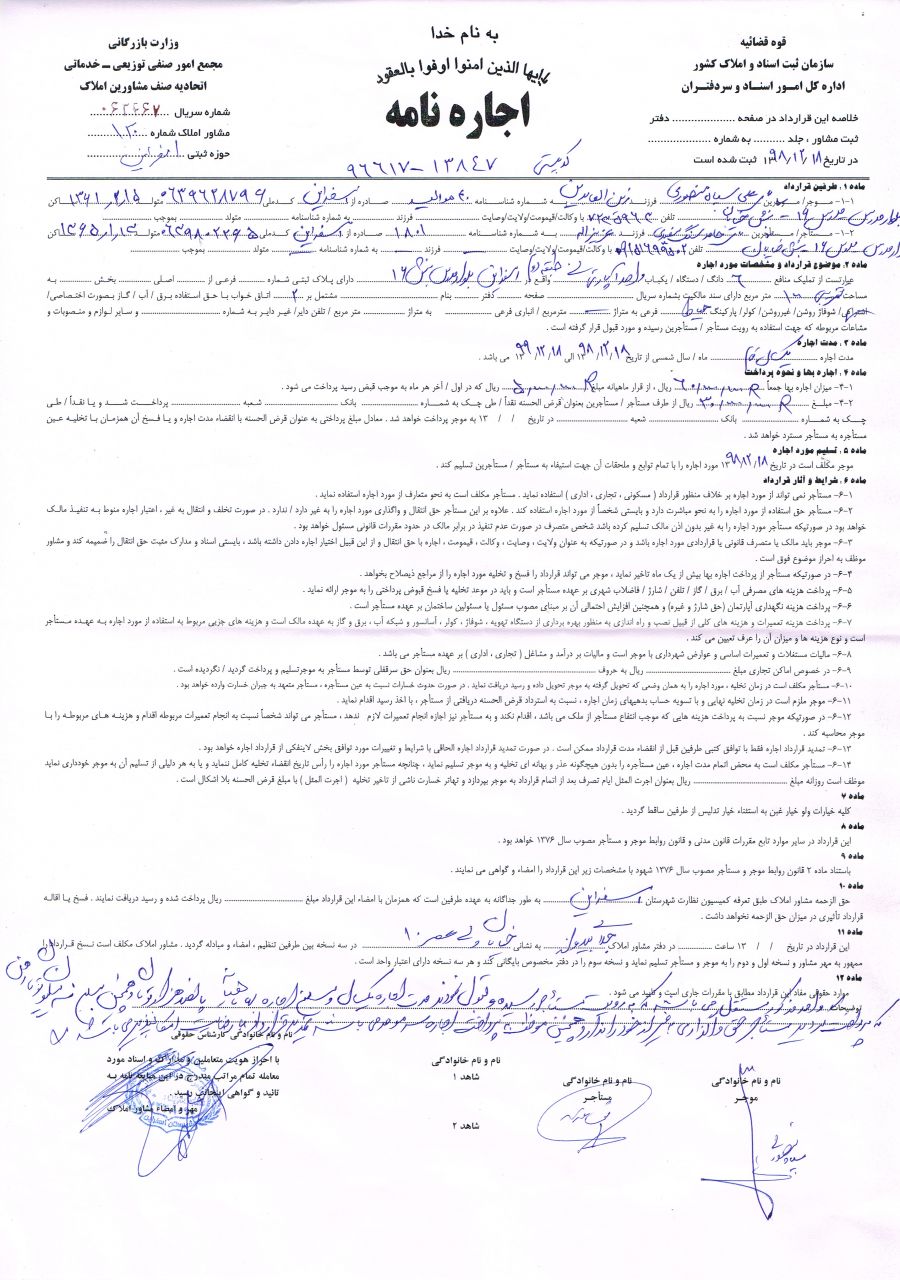 به نام خدا
یا ایها الذین امنوا اوفوا بالعقود
اجاره نامه
قوه قضائیه
سازمان ثبت اسناد و املاک کشور
اداره کل امور اسناد و سردفتران
خلاصه این قرارداد در صفحه .................. دفتر
ثبت مشاور ، جلد ........ به شماره ..................
در تاریخ ۱۳۹۸/۱۲/۱۸ ثبت شده است
وزارت بازرگانی
مجمع امور صنفی توزیعی ــ خدماتی
اتحادیه صنف مشاورین املاک
شماره سریال
مشاور املاک شماره ۱۲۰
حوزه ثبتی اسفراین
کد پستی ۱۳۸۴۷-۹۶۶۱۷
ماده ۱ . طرفین قرارداد
۱-۱- موجر/ موجرین علی سیاه منصوری فرزند زین العابدین به شماره شناسنامه صادره از اسفراین کدملی ۰۶۳۹۶۲۸۷۹۶ متولد ۱۳۶۱/۲/۱۵ ساکن
تلفن با وکالت/قیمومت/ولایت/وصایت فرزند به شماره شناسنامه متولد بموجب
۱-۲- مستأجر/ مستأجرین فرزند به شماره شناسنامه ۱۸۰۱ صادره از اسفراین کدملی متولد ساکن
تلفن با وکالت/قیمومت/ولایت/وصایت فرزند به شماره شناسنامه متولد بموجب
ماده ۲. موضوع قرارداد و مشخصات مورد اجاره
عبارتست از تملیک منافع ۶ دانگ / دستگاه / یکباب واحد آپارتمانی واقع در اسفراین دارای پلاک ثبتی شماره فرعی از اصلی بخش به
مساحت ۱۰۰ متر مربع دارای سند مالکیت بشماره سریال صفحه دفتر بنام مشتمل بر ۲ اتاق خواب با حق استفاده برق / آب / گاز بصورت اختصاصی/
اشتراکی/ شوفاژ روشن/ غیرروشن/ کولر/ پارکینگ فرعی به متراژ مترمربع / انباری فرعی به متراژ متر مربع / تلفن دایر/ غیر دایر به شماره و سایر لوازم و منصوبات و
مشاعات مربوطه که جهت استفاده به رویت مستأجر / مستأجرین رسیده و مورد قبول قرار گرفته است .
ماده ۳ . مدت اجاره
مدت اجاره یکسال ماه / سال شمسی از تاریخ ۱۳۹۸/۱۲/۱۸ الی ۱۳۹۹/۱۲/۱۸ می باشد .
ماده ۴ . اجاره بها و نحوه پرداخت
۴-۱- میزان اجاره بها جمعاً ۶۰/۰۰۰/۰۰۰ R ریال ، از قرار ماهیانه مبلغ ۵/۰۰۰/۰۰۰ R ریال که در اول / آخر هر ماه به موجب قبض رسید پرداخت می شود .
۴-۲- مبلغ ۳۰/۰۰۰/۰۰۰ R ریال از طرف مستأجر / مستأجرین بعنوان قرض الحسنه نقداً / طی چک به شماره بانک شعبه پرداخت شد و یا نقداً / طی
چک به شماره بانک شعبه در تاریخ / / ۱۳ به موجر پرداخت خواهد شد . معادل مبلغ پرداختی به عنوان قرض الحسنه با انقضاء مدت اجاره و یا فسخ آن همزمان با تخلیه عین
مستأجره به مستأجر مسترد خواهد شد .
ماده ۵ . تسلیم مورد اجاره
موجر مکلف است در تاریخ ۱۳۹۸/۱۲/۱۸ مورد اجاره را با تمام توابع و ملحقات آن جهت استیفاء به مستأجر / مستأجرین تسلیم کند .
ماده ۶ . شرایط و آثار قرارداد
۶-۱- مستأجر نمی تواند از مورد اجاره بر خلاف منظور قرارداد ( مسکونی ، تجاری ، اداری ) استفاده نماید . مستأجر مکلف است به نحو متعارف از مورد اجاره استفاده نماید .
۶-۲- مستأجر حق استفاده از مورد اجاره را به نحو مباشرت دارد و بایستی شخصاً از مورد اجاره استفاده کند . علاوه بر این مستأجر حق انتقال و واگذاری مورد اجاره را به غیر دارد / ندارد . در صورت تخلف و انتقال به غیر ، اعتبار اجاره منوط به تنفیذ مالک
خواهد بود در صورتیکه مستأجر مورد اجاره را به غیر بدون اذن مالک تسلیم کرده باشد شخص متصرف در صورت عدم تنفیذ در برابر مالک در حدود مقررات قانونی مسئول خواهد بود .
۶-۳- موجر باید مالک یا متصرف قانونی یا قراردادی مورد اجاره باشد و در صورتیکه به عنوان ولایت ، وصایت ، وکالت ، قیمومت ، اجاره با حق انتقال و از این قبیل اختیار اجاره دادن داشته باشد ، بایستی اسناد و مدارک مثبت حق انتقال را ضمیمه کند و مشاور
موظف به احراز موضوع فوق است .
۶-۴- در صورتیکه مستأجر از پرداخت اجاره بها بیش از یک ماه تاخیر نماید ، موجر می تواند قرارداد را فسخ و تخلیه مورد اجاره را از مراجع ذیصلاح بخواهد .
۶-۵- پرداخت هزینه های مصرفی آب / برق / گاز / تلفن / شارژ / فاضلاب شهری بر عهده مستأجر است و باید در موعد تخلیه یا فسخ قبوض پرداختی را به موجر ارائه نماید .
۶-۶- پرداخت هزینه نگهداری آپارتمان (حق شارژ و غیره) و همچنین افزایش احتمالی آن بر مبنای مصوب مسئول یا مسئولین ساختمان بر عهده مستأجر است .
۶-۷- پرداخت هزینه تعمیرات و هزینه های کلی از قبیل نصب و راه اندازی به منظور بهره برداری از دستگاه تهویه ، شوفاژ ، کولر ، آسانسور و شبکه آب ، برق و گاز به عهده مالک است و هزینه های جزیی مربوط به استفاده از مورد اجاره به عهده مستأجر
است و نوع هزینه ها و میزان آن را عرف تعیین می کند .
۶-۸- مالیات مستغلات و تعمیرات اساسی و عوارض شهرداری با موجر است و مالیات بر درآمد و مشاغل ( تجاری ، اداری ) بر عهده مستأجر می باشد .
۶-۹- در خصوص اماکن تجاری مبلغ ریال به حروف ریال بعنوان حق سرقفلی توسط مستأجر به موجرتسلیم و پرداخت گردید / نگردیده است .
۶-۱۰- مستأجر مکلف است در زمان تخلیه ، مورد اجاره را به همان وضعی که تحویل گرفته به موجر تحویل داده و رسید دریافت نماید . در صورت حدوث خسارات نسبت به عین مستأجره ، مستأجر متعهد به جبران خسارت وارده خواهد بود .
۶-۱۱- موجر ملزم است در زمان تخلیه نهایی و با تسویه حساب بدهیهای زمان اجاره ، نسبت به استرداد قرض الحسنه دریافتی از مستأجر ، با اخذ رسید اقدام نماید .
۶-۱۲- در صورتیکه موجر نسبت به پرداخت هزینه هایی که موجب انتفاع مستأجر از ملک می باشد ، اقدام نکند و به مستأجر نیز اجازه انجام تعمیرات لازم ندهد ، مستأجر می تواند شخصاً نسبت به انجام تعمیرات مربوطه اقدام و هزینه های مربوطه را با
موجر محاسبه کند .
۶-۱۳- تمدید قرارداد اجاره فقط با توافق کتبی طرفین قبل از انقضاء مدت قرارداد ممکن است . در صورت تمدید قرارداد اجاره الحاقی با شرایط و تغییرات مورد توافق بخش لاینفکی از قرارداد اجاره خواهد بود .
۶-۱۴- مستأجر مکلف است به محض اتمام مدت اجاره ، عین مستأجره را بدون هیچگونه عذر و بهانه ای تخلیه و به موجر تسلیم نماید ، چنانچه مستأجر مورد اجاره را رأس تاریخ انقضاء تخلیه کامل ننماید و یا به هر دلیلی از تسلیم آن به موجر خودداری نماید
موظف است روزانه مبلغ ریال بعنوان اجرت المثل ایام تصرف بعد از اتمام قرارداد به موجر بپردازد و تهاتر خسارت ناشی از تاخیر تخلیه ( اجرت المثل ) با مبلغ قرض الحسنه بلا اشکال است .
ماده ۷
کلیه خیارات ولو خیار غبن به استثناء خیار تدلیس از طرفین ساقط گردید .
ماده ۸
این قرارداد در سایر موارد تابع مقررات قانون مدنی و قانون روابط موجر و مستأجر مصوب سال ۱۳۷۶ خواهد بود .
ماده ۹
باستناد ماده ۲ قانون روابط موجر و مستأجر مصوب سال ۱۳۷۶ شهود با مشخصات زیر این قرارداد را امضاء و گواهی می نمایند .
ماده ۱۰
حق الزحمه مشاور املاک طبق تعرفه کمیسیون نظارت شهرستان اسفراین به طور جداگانه به عهده طرفین است که همزمان با امضاء این قرارداد مبلغ ریال پرداخت شده و رسید دریافت نمایند . فسخ یا اقاله
قرارداد تأثیری در میزان حق الزحمه نخواهد داشت .
ماده ۱۱
این قرارداد در تاریخ / / ۱۳ ساعت در دفتر مشاور املاک به نشانی در سه نسخه بین طرفین تنظیم ، امضاء و مبادله گردید . مشاور املاک مکلف است نسخ قرارداد را
ممهور به مهر مشاور و نسخه اول و دوم را به موجر و مستأجر تسلیم نماید و نسخه سوم را در دفتر مخصوص بایگانی کند و هر سه نسخه دارای اعتبار واحد است .
ماده ۱۲
موارد حقوقی مفاد این قرارداد مطابق با مقررات جاری است و تایید می شود .
توضیحات
نام و نام خانوادگی
موجر
نام و نام خانوادگی
مستاجر
نام و نام خانوادگی
شاهد ۱
شاهد ۲
نام و نام خانوادگی کارشناس حقوقی
با احراز هویت متعاملین و مدارک و اسناد مورد
معامله تمام مراتب مندرج در این مبایعه نامه به
تائید و گواهی اینجانب رسید .
مهر و امضاء مشاور املاک